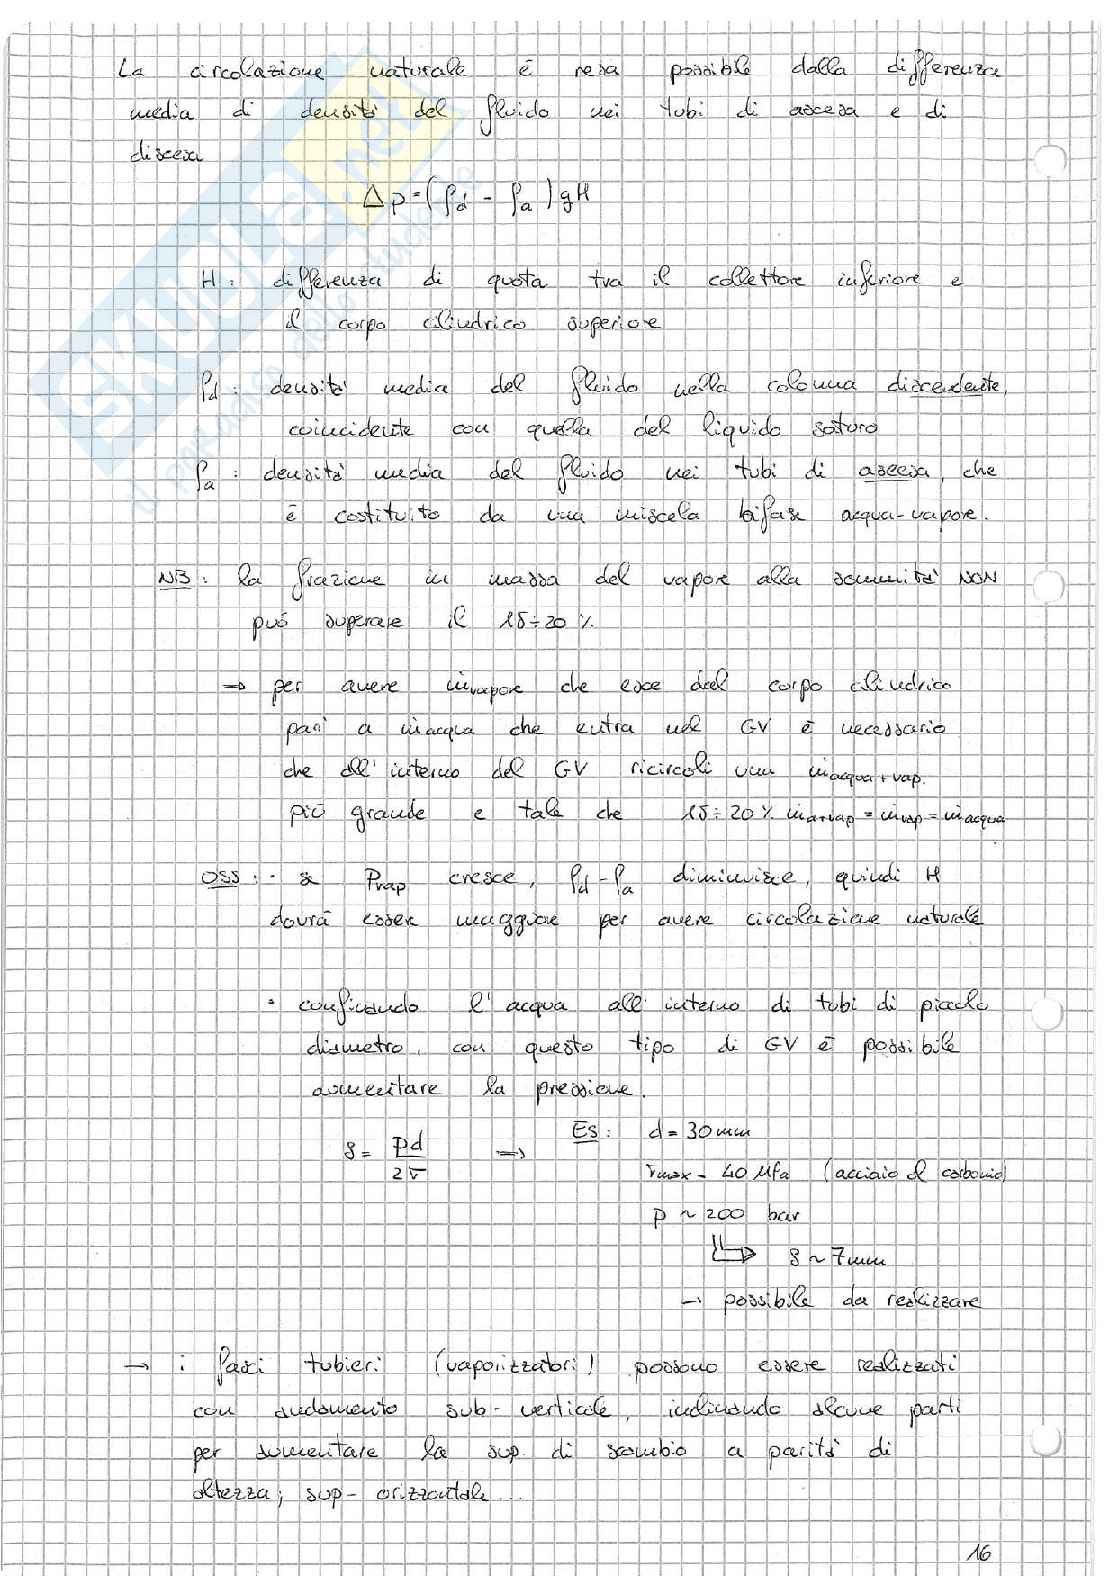 La circolazione naturale è resa possibile dalla differenza
media di densità del fluido nei tubi di ascesa e di
discesa
Δp = (ρd - ρa) gH
H: differenza di quota tra il collettore inferiore e
il corpo cilindrico superiore
ρd: densità media del fluido nella colonna discendente,
coincidente con quella del liquido saturo
ρa: densità media del fluido nei tubi di ascesa, che
è costituito da una miscela bifase acqua-vapore.
NB: la frazione in massa del vapore alla sommità NON
può superare il 15÷20 %
→ per avere ṁvapore che esce dal corpo cilindrico
pari a ṁacqua che entra nel GV è necessario
che all'interno del GV ricircoli una ṁacqua+vap.
più grande e tale che 15÷20 % ṁa+vap = ṁvap = ṁacqua
OSS: · se Pvap cresce, ρd-ρa diminuisce, quindi H
dovrà esser maggiore per avere circolazione naturale
· confinando l'acqua all'interno di tubi di piccolo
diametro, con questo tipo di GV è possibile
aumentare la pressione.
s = pd / 2σ → Es: d = 30 mm
σmax = 40 MPa (acciaio al carbonio)
p ~ 200 bar
⇒ s ~ 7mm
→ possibile da realizzare
→ i fasci tubieri (vaporizzatori) possono essere realizzati
con andamento sub-verticale, inclinando alcune parti
per aumentare la sup. di scambio a parità di
altezza; sup- orizzontale...
16
SKUOLA.net
il paradiso dello studente